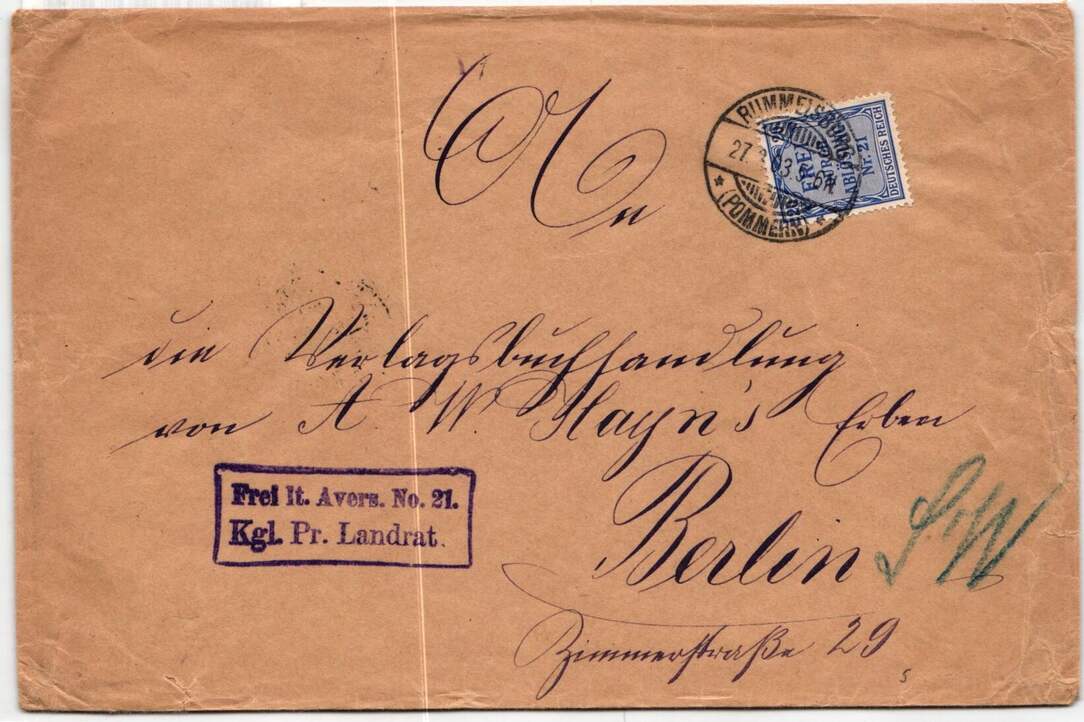 An
die Verlagsbuchhandlung
von A. W. Hayn's Erben
Berlin S.W
Zimmerstraße 29
Frei lt. Avers. No. 21.
Kgl. Pr. Landrat.
RUMMELSBURG
(POMMERN)
27
DEUTSCHES REICH
Nr. 21